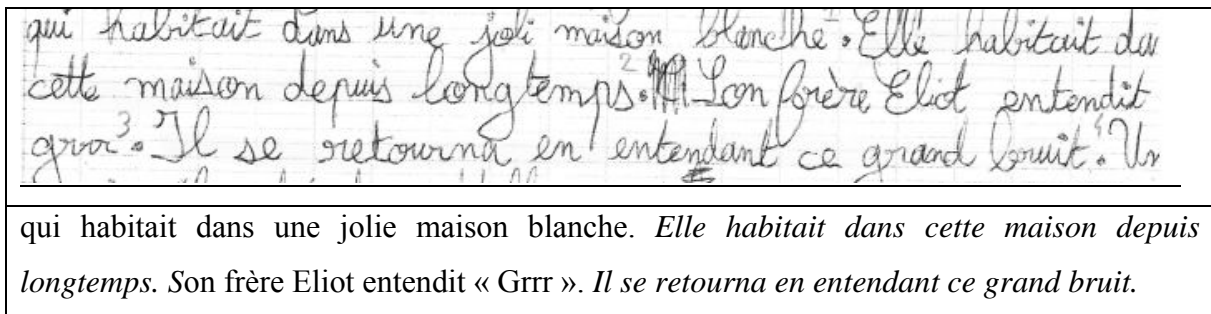 qui habitait dans une joli maison blanche.1 Elle habitait da
cette maison depuis longtemps.2 Son frère Eliot entendit
grrr3. Il se retourna en entendant ce grand bruit.4 Un
qui habitait dans une jolie maison blanche. Elle habitait dans cette maison depuis
longtemps. Son frère Eliot entendit « Grrr ». Il se retourna en entendant ce grand bruit.